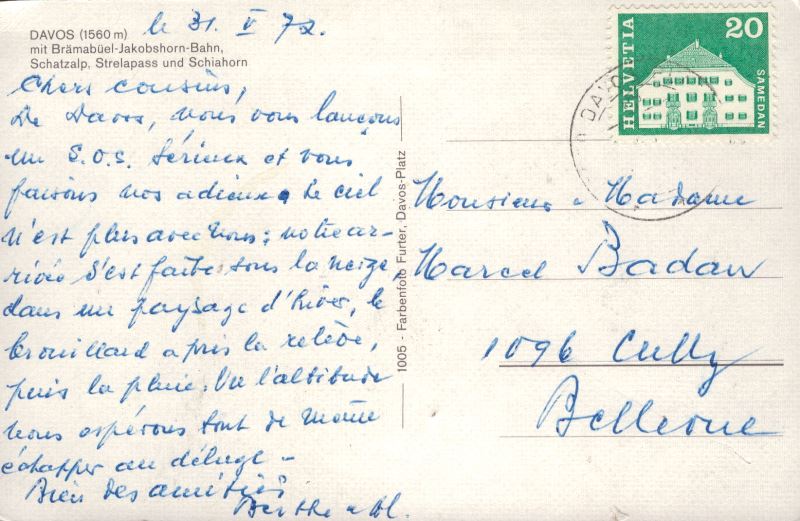 DAVOS (1560 m)
mit Brämabüel-Jakobshorn-Bahn,
Schatzalp, Strelapass und Schiahorn
le 31. V 72.
Chers cousins,
De Davos, nous vous lançons
un S.O.S. sérieux et vous
faisons nos adieux. Le ciel
n'est plus avec nous; notre ar-
rivée s'est faite sous la neige,
dans un paysage d'hiver, le
brouillard a pris la relève,
puis la pluie. Vu l'altitude
nous espérons tout de même
échapper au déluge -
Bien des amitiés
Berthe
1005 - Farbenfoto Furter, Davos-Platz
HELVETIA
20
SAMEDAN
DAVO
Monsieur & Madame
Marcel Badan
1096 Cully
Bellerive